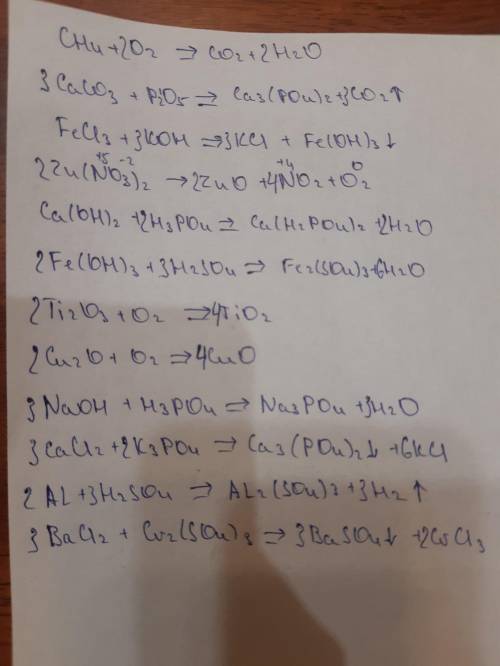 CH4 + 2O2 ⇒ CO2 + 2H2O
3CaCO3 + P2O5 ⇒ Ca3(PO4)2 + 3CO2↑
FeCl3 + 3KOH ⇒ 3KCl + Fe(OH)3↓
+5 -2 +4 0
2Zn(NO3)2 → 2ZnO + 4NO2 + O2
Ca(OH)2 + 2H3PO4 ⇒ Ca(H2PO4)2 + 2H2O
2Fe(OH)3 + 3H2SO4 ⇒ Fe2(SO4)3 + 6H2O
2Ti2O3 + O2 ⇒ 4TiO2
2Cu2O + O2 ⇒ 4CuO
3NaOH + H3PO4 ⇒ Na3PO4 + 3H2O
3CaCl2 + 2K3PO4 ⇒ Ca3(PO4)2↓ + 6KCl
2AL + 3H2SO4 ⇒ AL2(SO4)3 + 3H2↑
3BaCl2 + Cr2(SO4)3 ⇒ 3BaSO4↓ + 2CrCl3